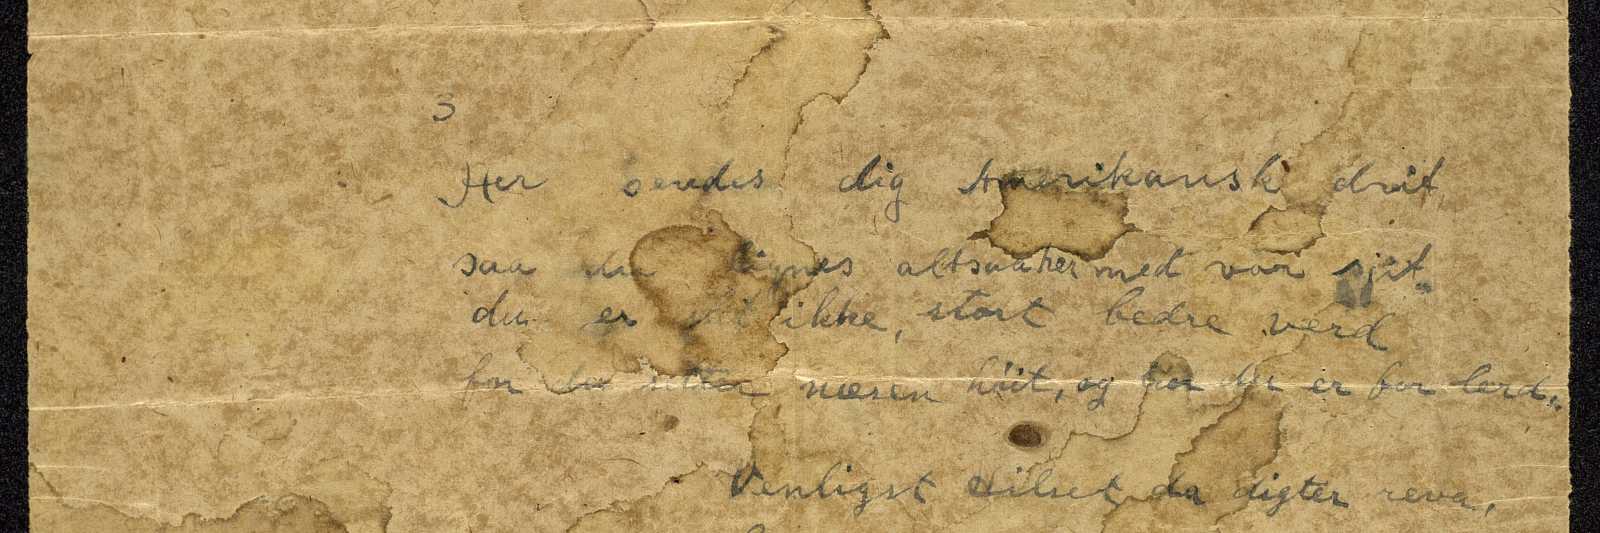 3
Her sendes dig Amerikansk drit,
saa du lignes altsaa her med vor sjit.
du er ikke, stort bedre verd
for du setter næsen höit, og du er bar lerd.
Venligst Hilset da digter reva,